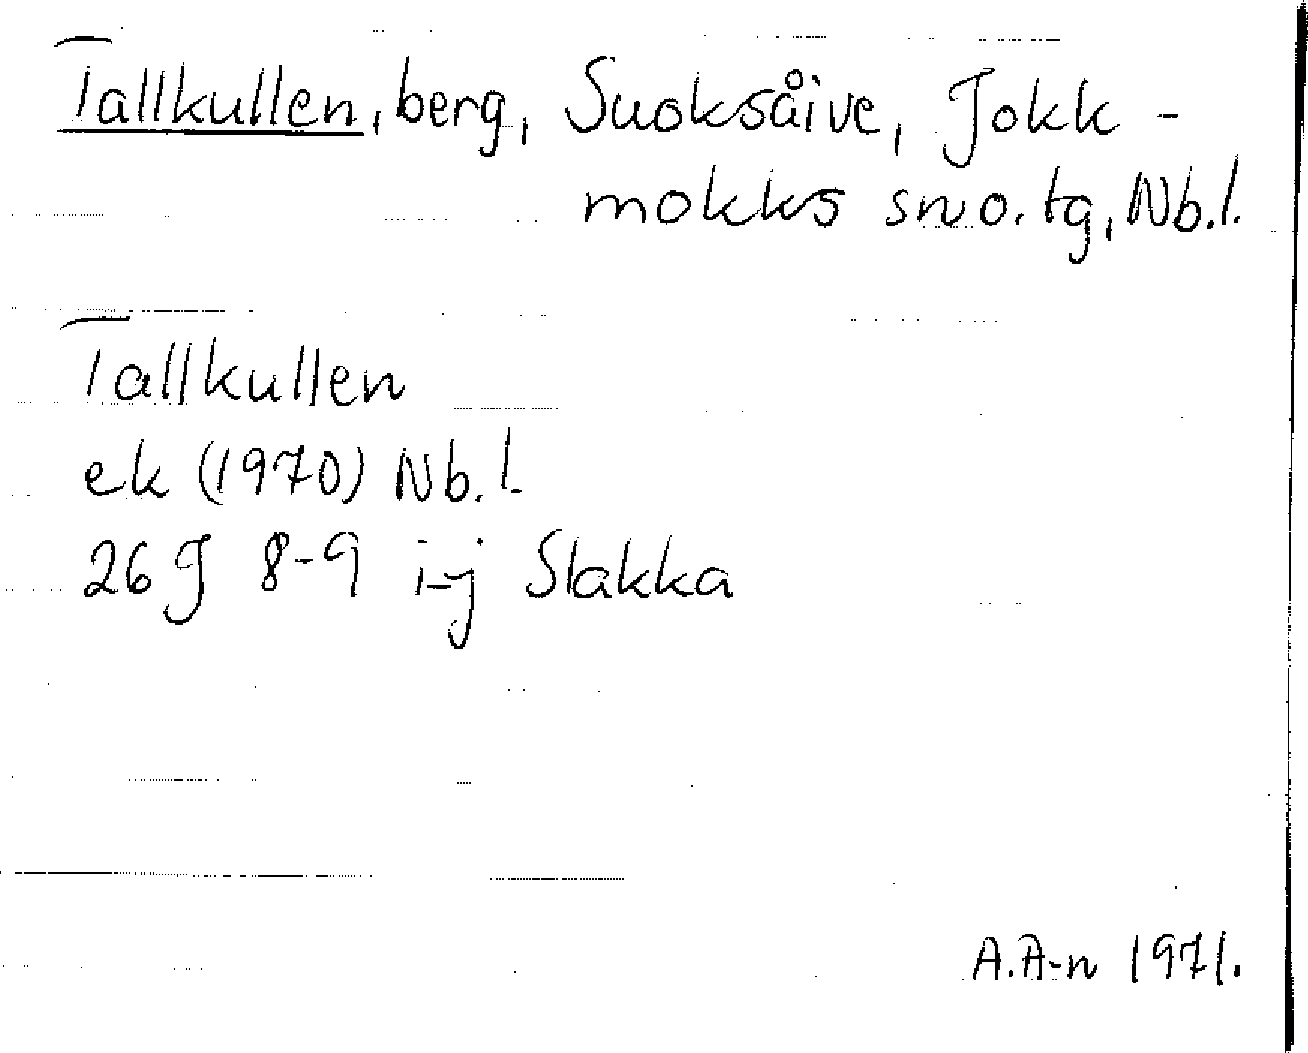 Tallkullen, berg, Suoksåive, Jokk-
mokks sn o. tg, Nb.l.
Tallkullen
ek (1970) Nb.l.
26J 8-9 i-j Slakka
A.A-n 1971.